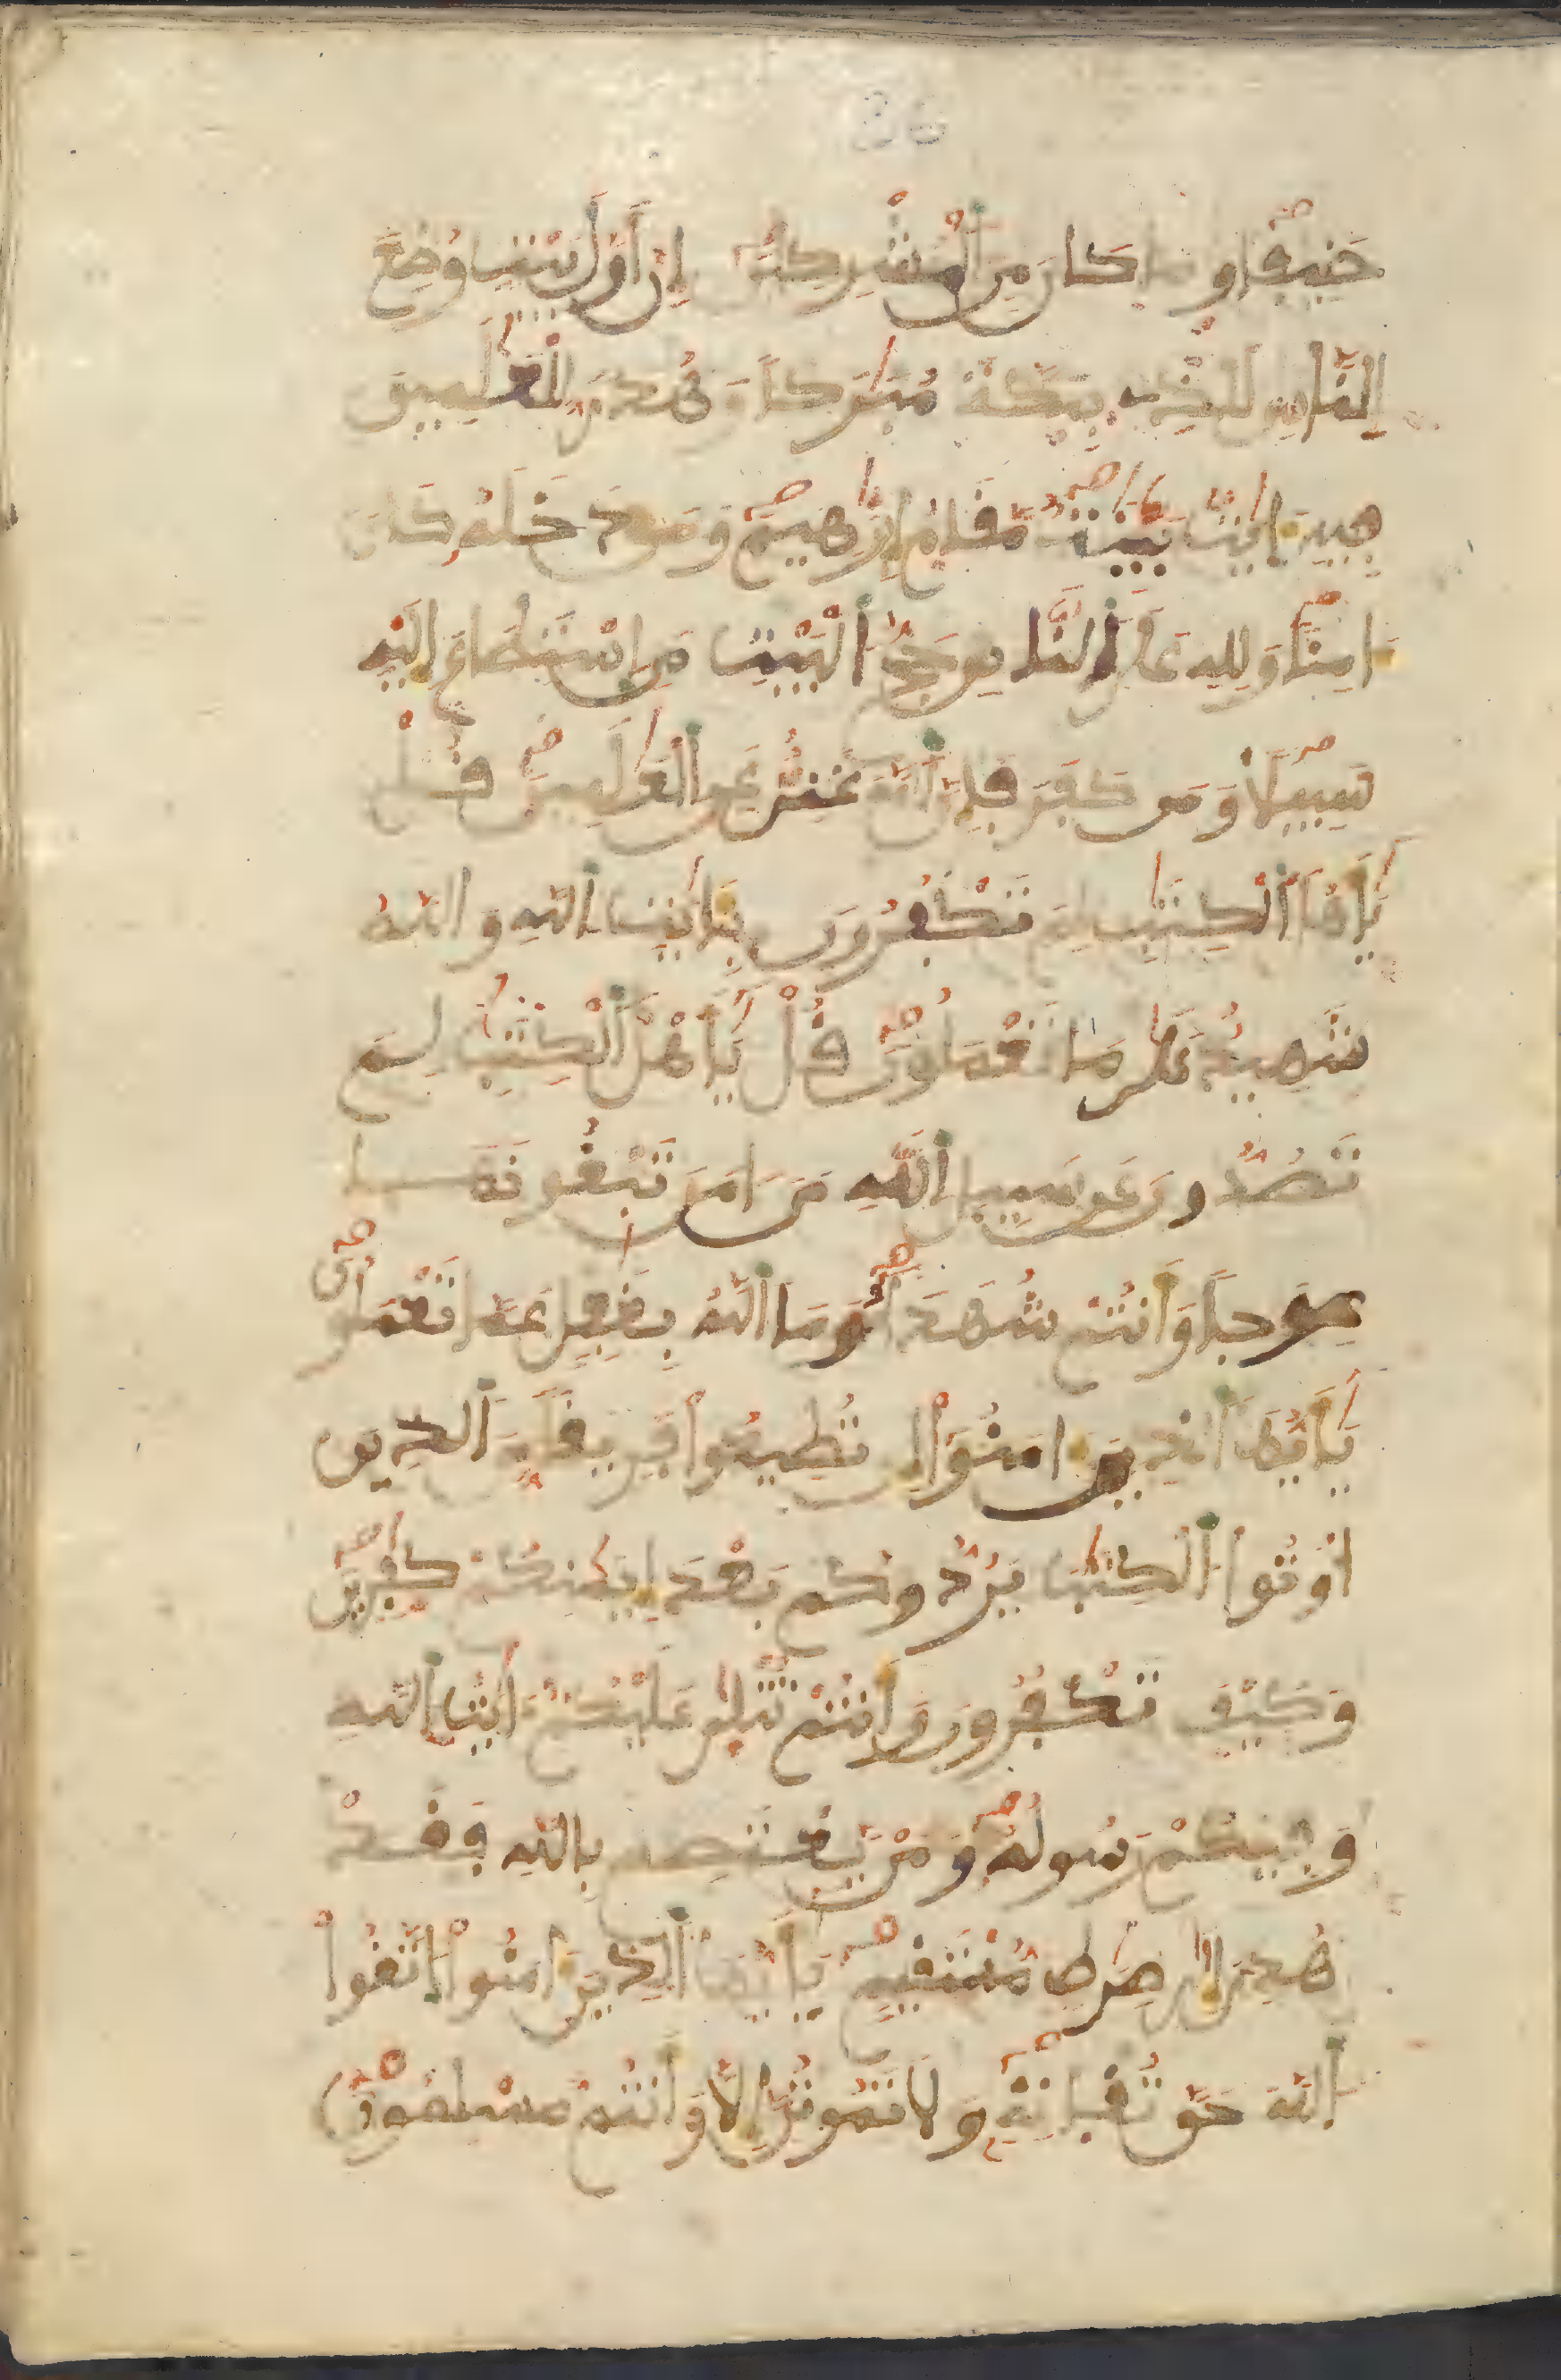 36
حَنِيفًا وَمَا كَانَ مِنَ ٱلْمُشْرِكِينَ إِنَّ أَوَّلَ بَيْتٍ وُضِعَ
لِلنَّاسِ لَلَّذِي بِبَكَّةَ مُبَٰرَكًا وَهُدًى لِّلْعَٰلَمِينَ
فِيهِ ءَايَٰتٌ بَيِّنَٰتٌ مَّقَامُ إِبْرَٰهِيمَ وَمَن دَخَلَهُ كَانَ
ءَامِنًا وَلِلهِ عَلَى ٱلنَّاسِ حَجُّ ٱلْبَيْتِ مَنِ ٱسْتَطَاعَ إِلَيْهِ
سَبِيلًا وَمَن كَفَرَ فَإِنَّ ٱللَّهَ غَنِيٌّ عَنِ ٱلْعَٰلَمِينَ قُلْ
يَٰأَهْلَ ٱلْكِتَٰبِ لِمَ تَكْفُرُونَ بِـَٔايَٰتِ ٱللَّهِ وَٱللَّهُ
شَهِيدٌ عَلَىٰ مَا تَعْمَلُونَ قُلْ يَٰأَهْلَ ٱلْكِتَٰبِ لِمَ
تَصُدُّونَ عَن سَبِيلِ ٱللَّهِ مَنَ ـامَنَ تَبْغُونَهَا
عِوَجًا وَأَنتُمْ شُهَدَآءُ وَمَا ٱللَّهُ بِغَٰفِلٍ عَمَّا تَعْمَلُونَ
يَٰأَيُّهَا ٱلَّذِينَ ءَامَنُوٓا۟ إِن تُطِيعُوا۟ فَرِيقًا مِّنَ ٱلَّذِينَ
أُوتُوا۟ ٱلْكِتَٰبَ يَرُدُّوكُم بَعْدَ إِيمَٰنِكُمْ كَٰفِرِينَ
وَكَيْفَ تَكْفُرُونَ وَأَنتُمْ تُتْلَىٰ عَلَيْكُمْ ءَايَٰتُ ٱللَّهِ
وَفِيكُمْ رَسُولُهُ وَمَنْ يَّعْتَصِم بِٱللَّهِ فَقَدْ
هُدِيَ إِلَىٰ صِرَٰطٍ مُّسْتَقِيمٍ يَٰأَيُّهَا ٱلَّذِينَ ءَامَنُوا۟ ٱتَّقُوا۟
ٱللَّهَ حَقَّ تُقَاتِهِ وَلَا تَمُوتُنَّ إِلَّا وَأَنتُم مُّسْلِمُونَ